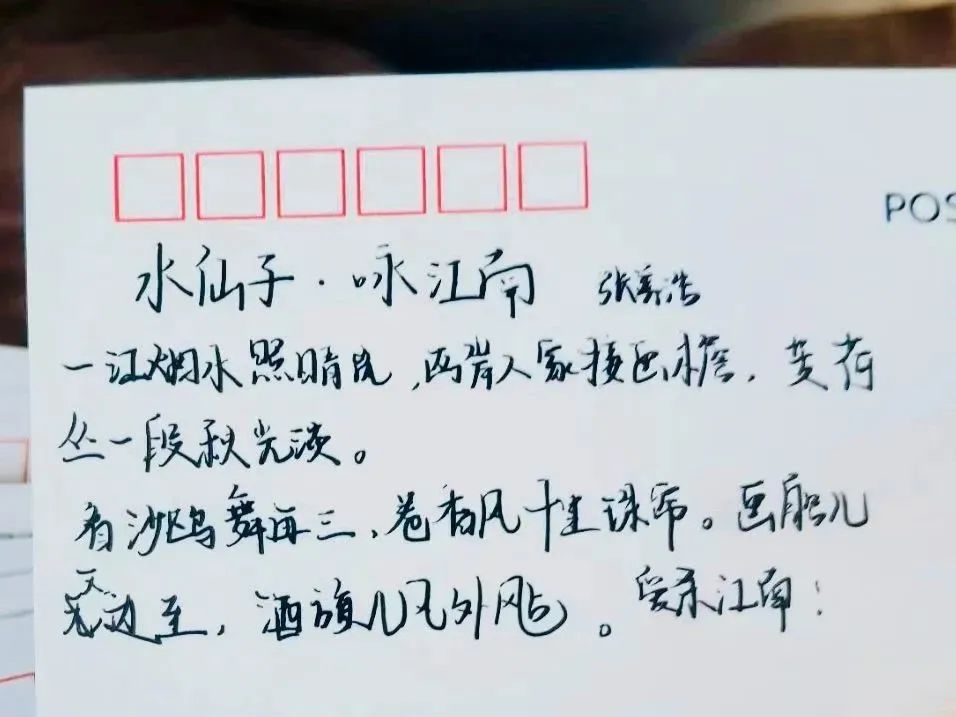 POS
水仙子·咏江南 张养浩
一江烟水照晴岚,两岸人家接画檐,芰荷
丛一段秋光淡。
看沙鸥舞再三,卷香风十里珠帘。画船儿
天边至,酒旗儿风外飐。爱杀江南!